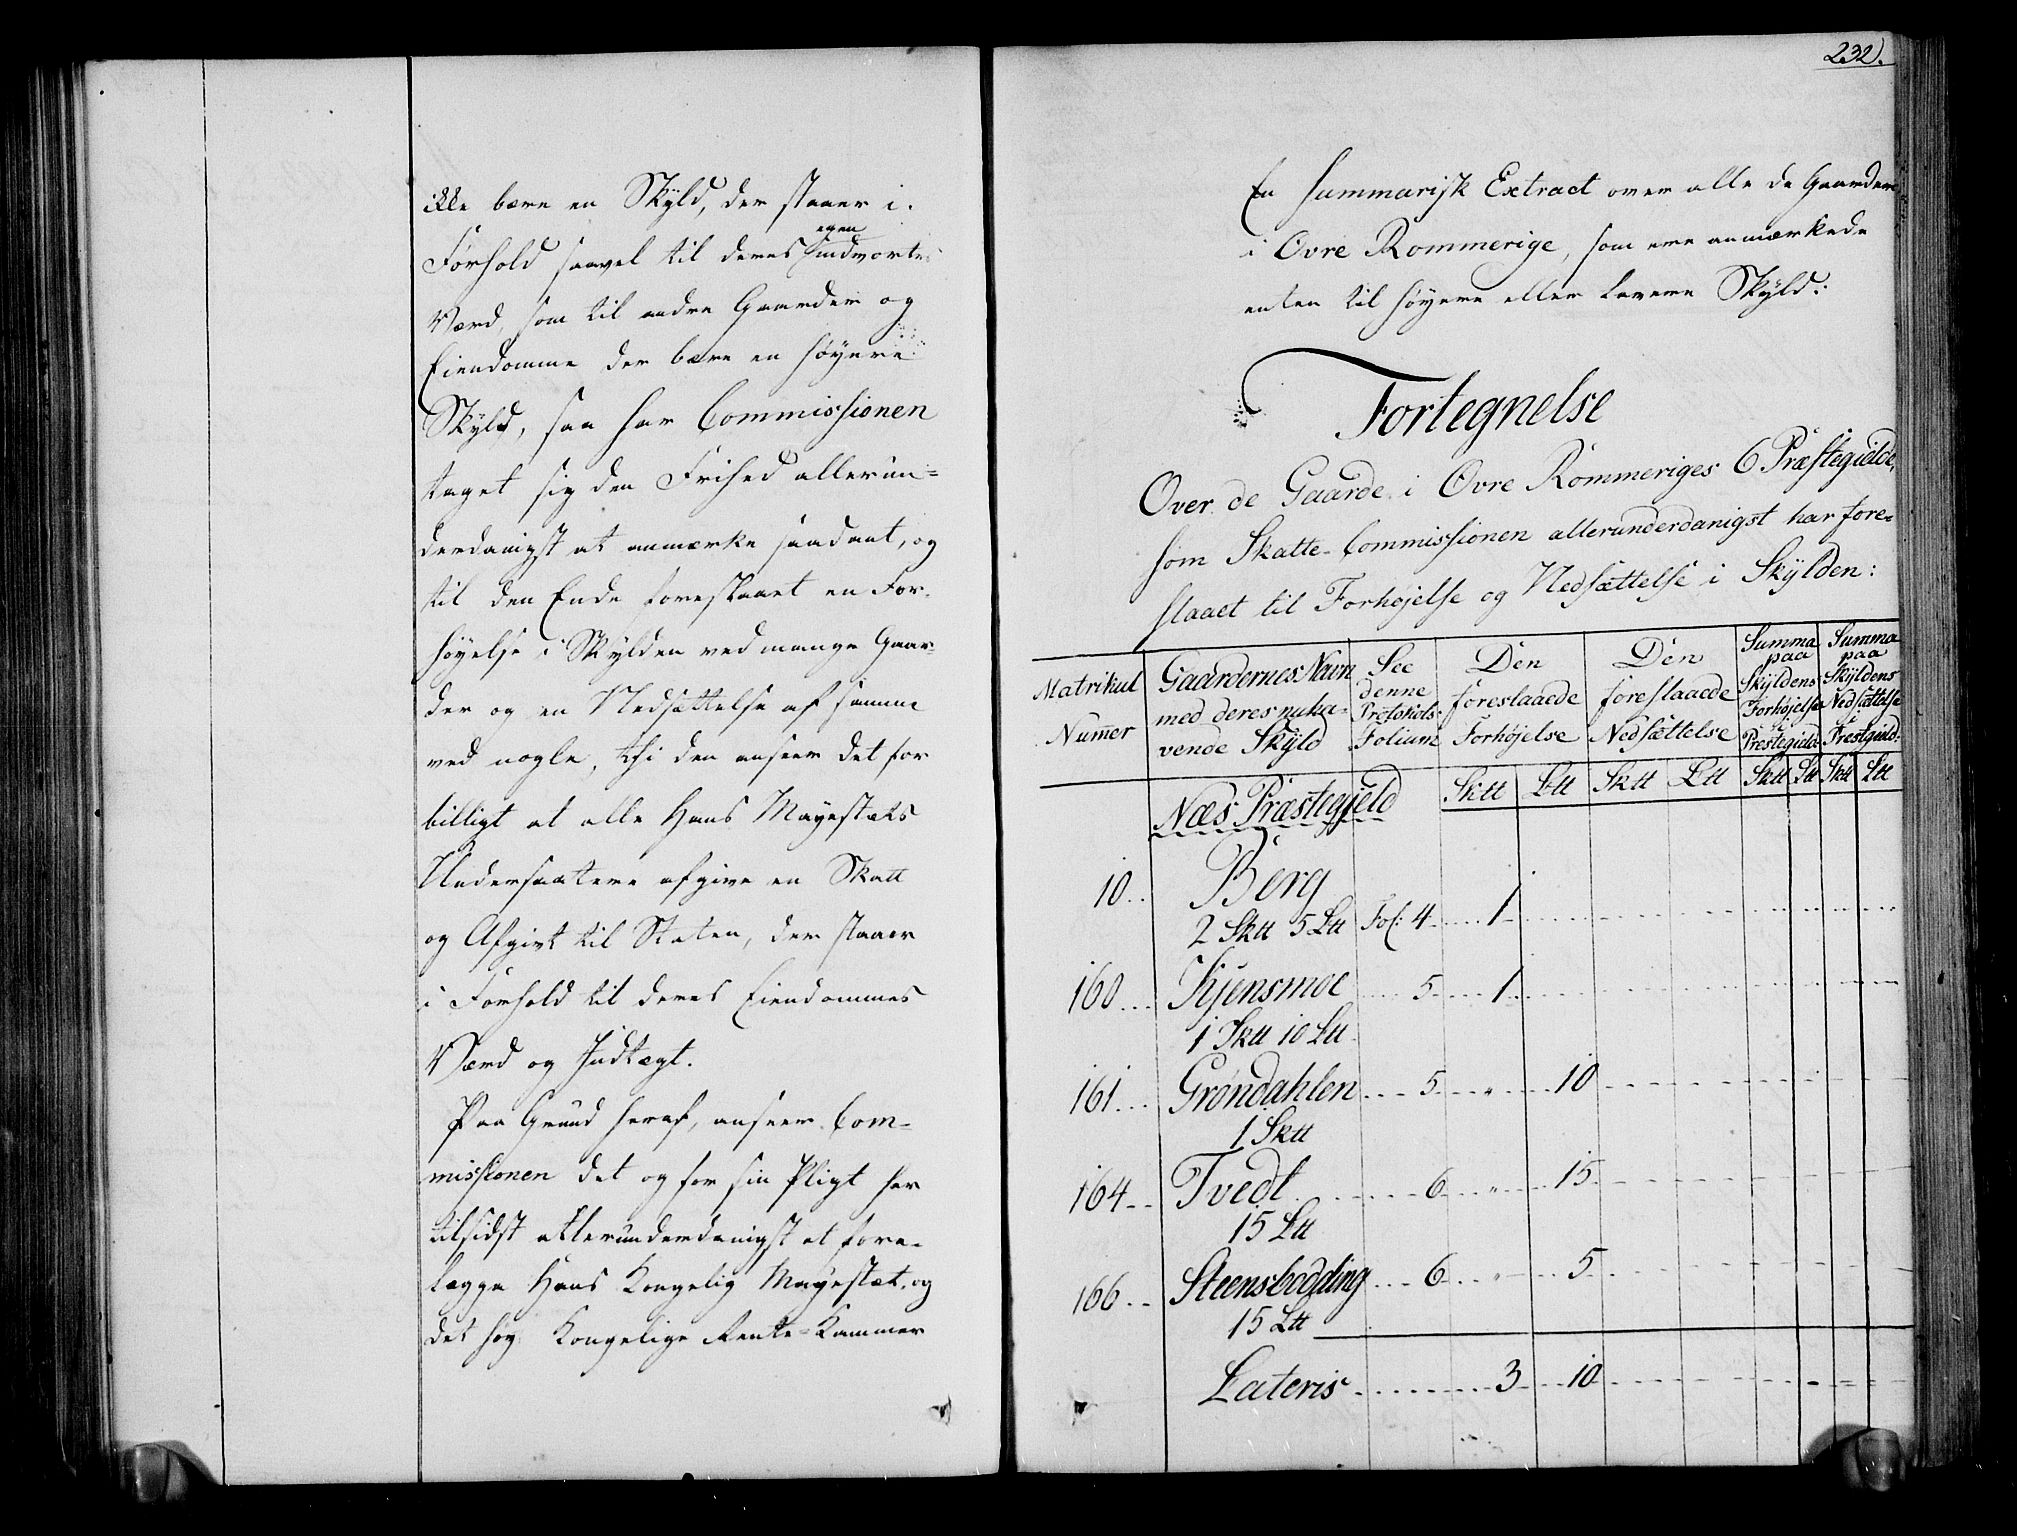 ikke bære en Skyld, der staaer i
egen
Forhold saavel til deres Indvortes
Værd, som til andre Gaarder og
Eiendomme der bære en høyere
Skyld, saa har Commissionen
taget sig den Frihed allerun=
derdanigst at anmærke saadant, og
til den Ende foreslaaet en For-
høyelse i Skylden ved mange Gaar-
der og en Nedsættelse af samme
ved nogle, thi den anseer det for
billigt at alle Hans Mayestæts
Undersaatere afgive en Skatt
og Afgivt til Staten, der staaer
i Forhold til deres Eiendommes
Værd og Indtægt.
Paa Grund heraf, anseer Com-
missionen det og for sin Pligt her
tilsidst allerunderdanigst at fore-
lægge Hans Kongelig Mayestæt, og
det høy Kongelige Rente=Kammer
232.
En summarisk Extract over alle de Gaarder
i Ovre Rommerige, som ere anmærkede
enten til høyere eller lavere Skyld:
Fortegnelse
Over de Gaarde i Ovre Rommeriges 6 Præstegielde,
som Skatte-Commissionen allerunderdanigst har fore=
slaaet til Forhøjelse og Nedsættelse i Skylden:
Matrikul Numer | Gaardernes Navn med deres nuha-vende Skyld | See denne Protokols Folium | Den foreslaaede Forhøjelse | Den foreslaaede Nedsættelse | Summa paa Skyldens Forhøjelse i Prestegield | Summa paa Skyldens Nedsættelse i Prestgield:
Sktt Ltt Sktt Ltt Sktt Ltt Sktt Ltt
Næs Præstegjeld
10.. Berg
2 Sktt 5 Ltt Fol: 4 1
160... Kjensmoe 5 1
1 Sktt 10 Ltt
161... Grøndahlen 5 " 10
1 Sktt
164.. Tvedt 6 " 15
15 Ltt
166.. Steensbodding 6 " 5
15 Ltt
Lateris 3 10